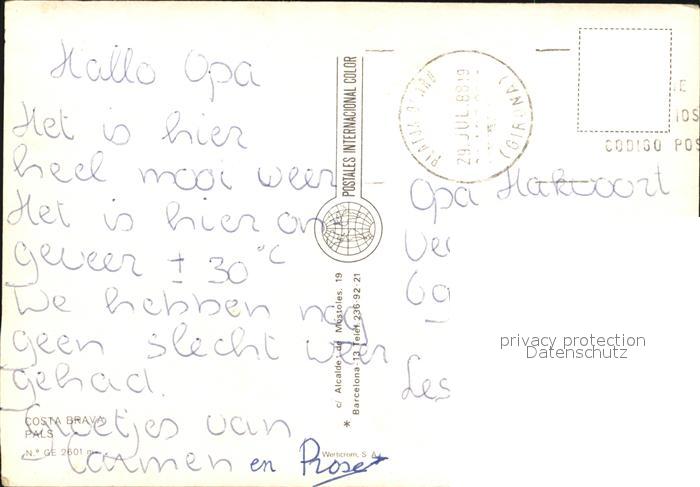 Hallo Opa
Het is hier
heel mooi weer
Het is hier on
geveer ± 30°C
We hebben nog
geen slecht weer
gehad.
Groetjes van
Carmen en Rose
COSTA BRAVA
PALS
N.º GE 2601
POSTALES INTERNACIONAL COLOR
c/ Alcalde de Mostoles, 19
Barcelona-13 Telef. 236-92-21
29 JUL 88 19
(GIRONA)
CODIGO POS
Opa Harwoort
Les
privacy protection
Datenschutz